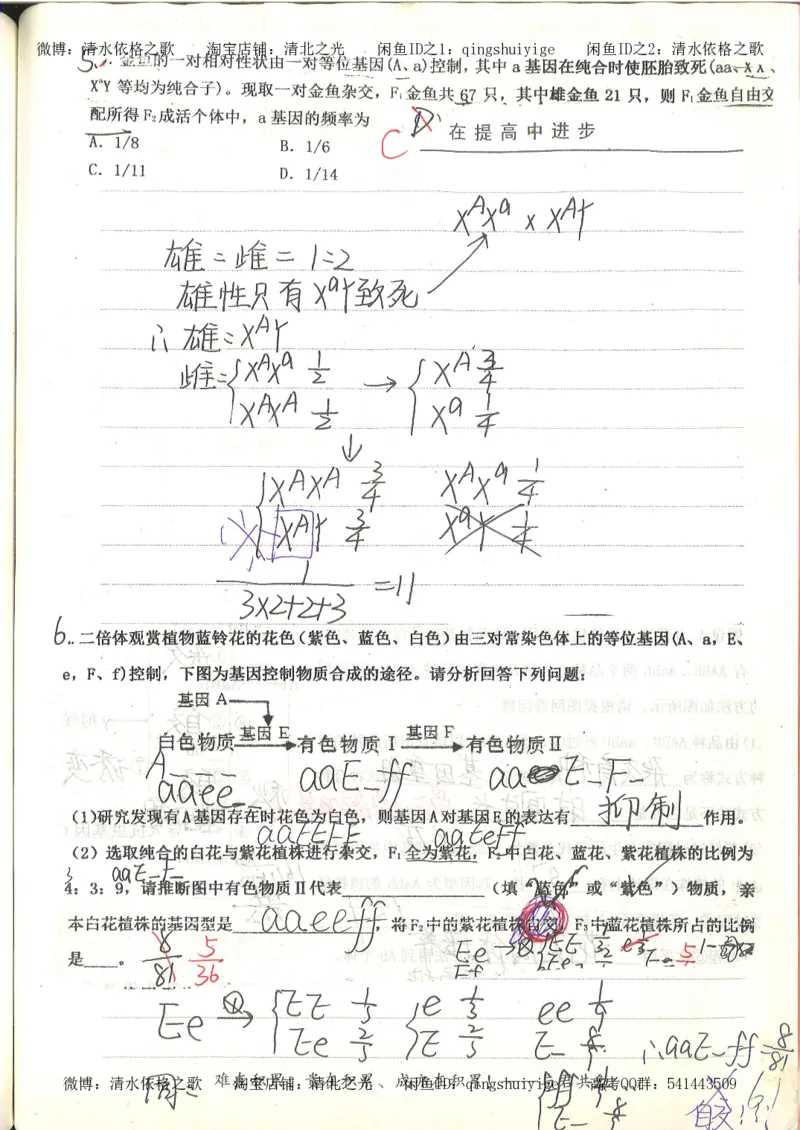 微博：清水依格之歌 淘宝店铺：清北之光 闲鱼ID之1：qingshuiyige 闲鱼ID之2：清水依格之歌
5. 金鱼的一对相对性状由一对等位基因(A、a)控制，其中 a 基因在纯合时使胚胎致死(aa、XᵃXᵃ、
XᵃY 等均为纯合子)。现取一对金鱼杂交，F₁金鱼共 67 只，其中雄金鱼 21 只，则 F₁金鱼自由交
配所得 F₂成活个体中，a 基因的频率为 D
C 在提高中进步
A．1/8 B．1/6
C．1/11 D．1/14
XᴬXᵃ x XᴬY
雄：雌=1:2
雄性只有XᵃY致死
∴雄：XᴬY
雌：XᴬXᵃ 1/2 → Xᴬ 3/4
XᴬXᴬ 1/2 Xᵃ 1/4
XᴬXᴬ 3/4 XᴬXᵃ 1/4
XᴬY 3/4 XᵃY 1/4
1/(3x2+2+3) =11
6.．二倍体观赏植物蓝铃花的花色（紫色、蓝色、白色）由三对常染色体上的等位基因(A、a，E、
e，F、f)控制，下图为基因控制物质合成的途径。请分析回答下列问题：
基因 A
白色物质 基因 E 有色物质 Ⅰ 基因 F 有色物质Ⅱ
A_ _ _ _ aaE_ff aa E_F_
aaee_ _
(1)研究发现有A基因存在时花色为白色，则基因A对基因E的表达有 抑制 作用。
aaEEFF aaeeff
(2) 选取纯合的白花与紫花植株进行杂交，F₁全为紫花，F₂中白花、蓝花、紫花植株的比例为
aaE_F_
4：3：9，请推断图中有色物质Ⅱ代表（填“蓝色”或“紫色”）物质，亲
本白花植株的基因型是 aaeeff ，将F₂中的紫花植株自交，F₃中蓝花植株所占的比例
是 。 8/81 5/36
Ee ⊗ EE 1/3 e 1/3 ee 1/9
Ee 2/3 E 2/3 E_ 8/9 ∴aaE_ff=8/81
微博：清水依格之歌 淘宝店铺：清北之光 闲鱼ID：qingshuiyige 高考QQ群：541443509
自交